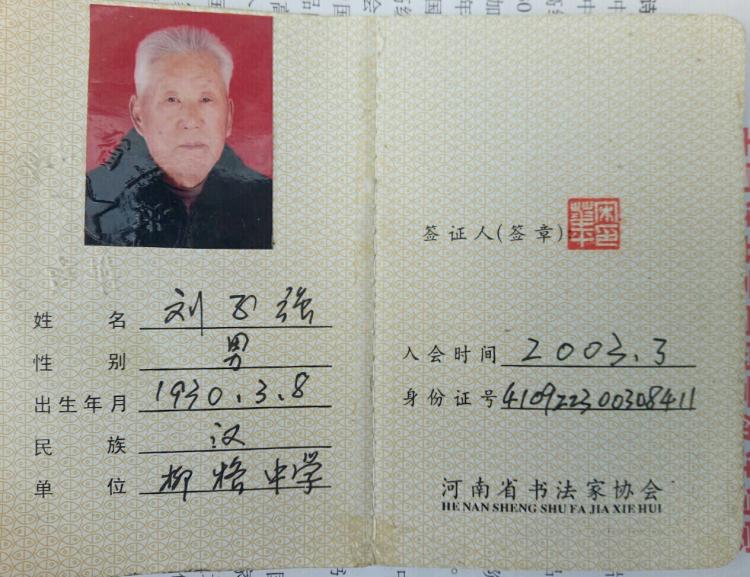 姓名 刘正强
性别 男
出生年月 1930.3.8
民族 汉
单位 柳格中学
签证人(签章)
入会时间 2003.3
身份证号 410922300308411
河南省书法家协会
HE NAN SHENG SHU FA JIA XIE HUI